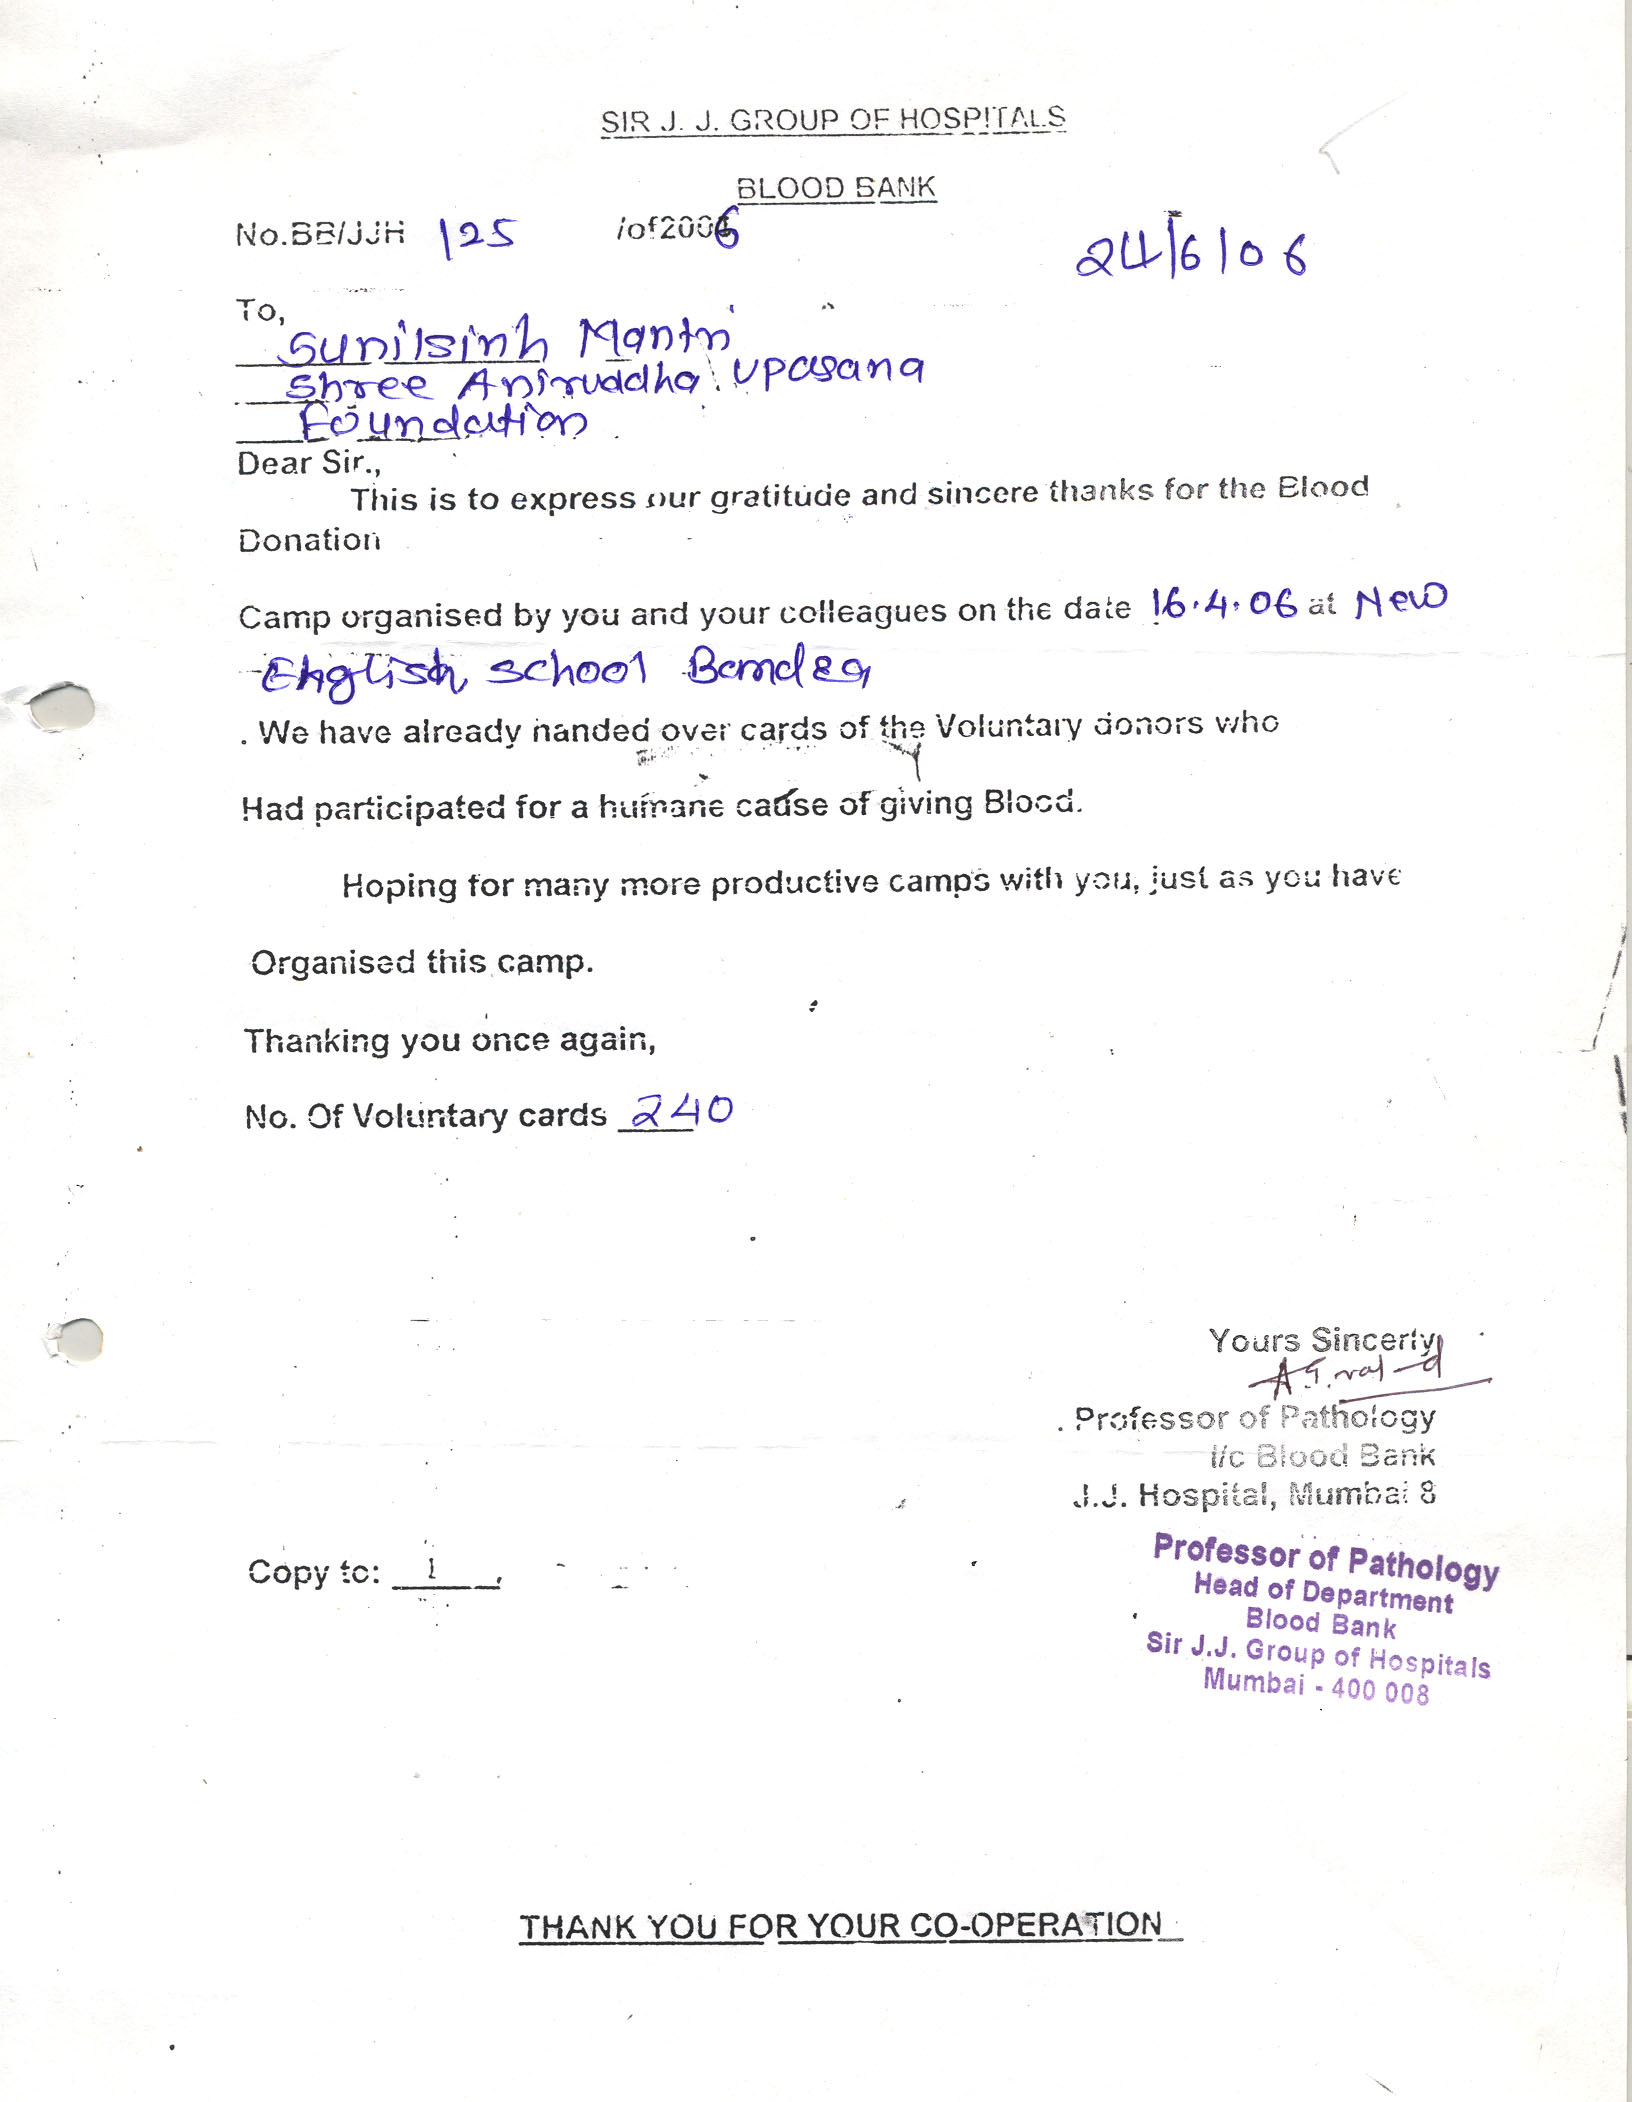 SIR J. J. GROUP OF HOSPITALS
BLOOD BANK
No.BB/JJH 125 /of2006
24/6/06
To,
Sunilsinh Mantri
Shree Aniruddha Upasana
Foundation
Dear Sir.,
This is to express our gratitude and sincere thanks for the Blood
Donation
Camp organised by you and your colleagues on the date 16.4.06 at New
English school Bandra
. We have already handed over cards of the Voluntary donors who
Had participated for a humane cause of giving Blood.
Hoping for many more productive camps with you, just as you have
Organised this camp.
Thanking you once again,
No. Of Voluntary cards 240
Yours Sincerly
Professor of Pathology
I/c Blood Bank
J.J. Hospital, Mumbai 8
Copy to: 1
Professor of Pathology
Head of Department
Blood Bank
Sir J.J. Group of Hospitals
Mumbai - 400 008
THANK YOU FOR YOUR CO-OPERATION